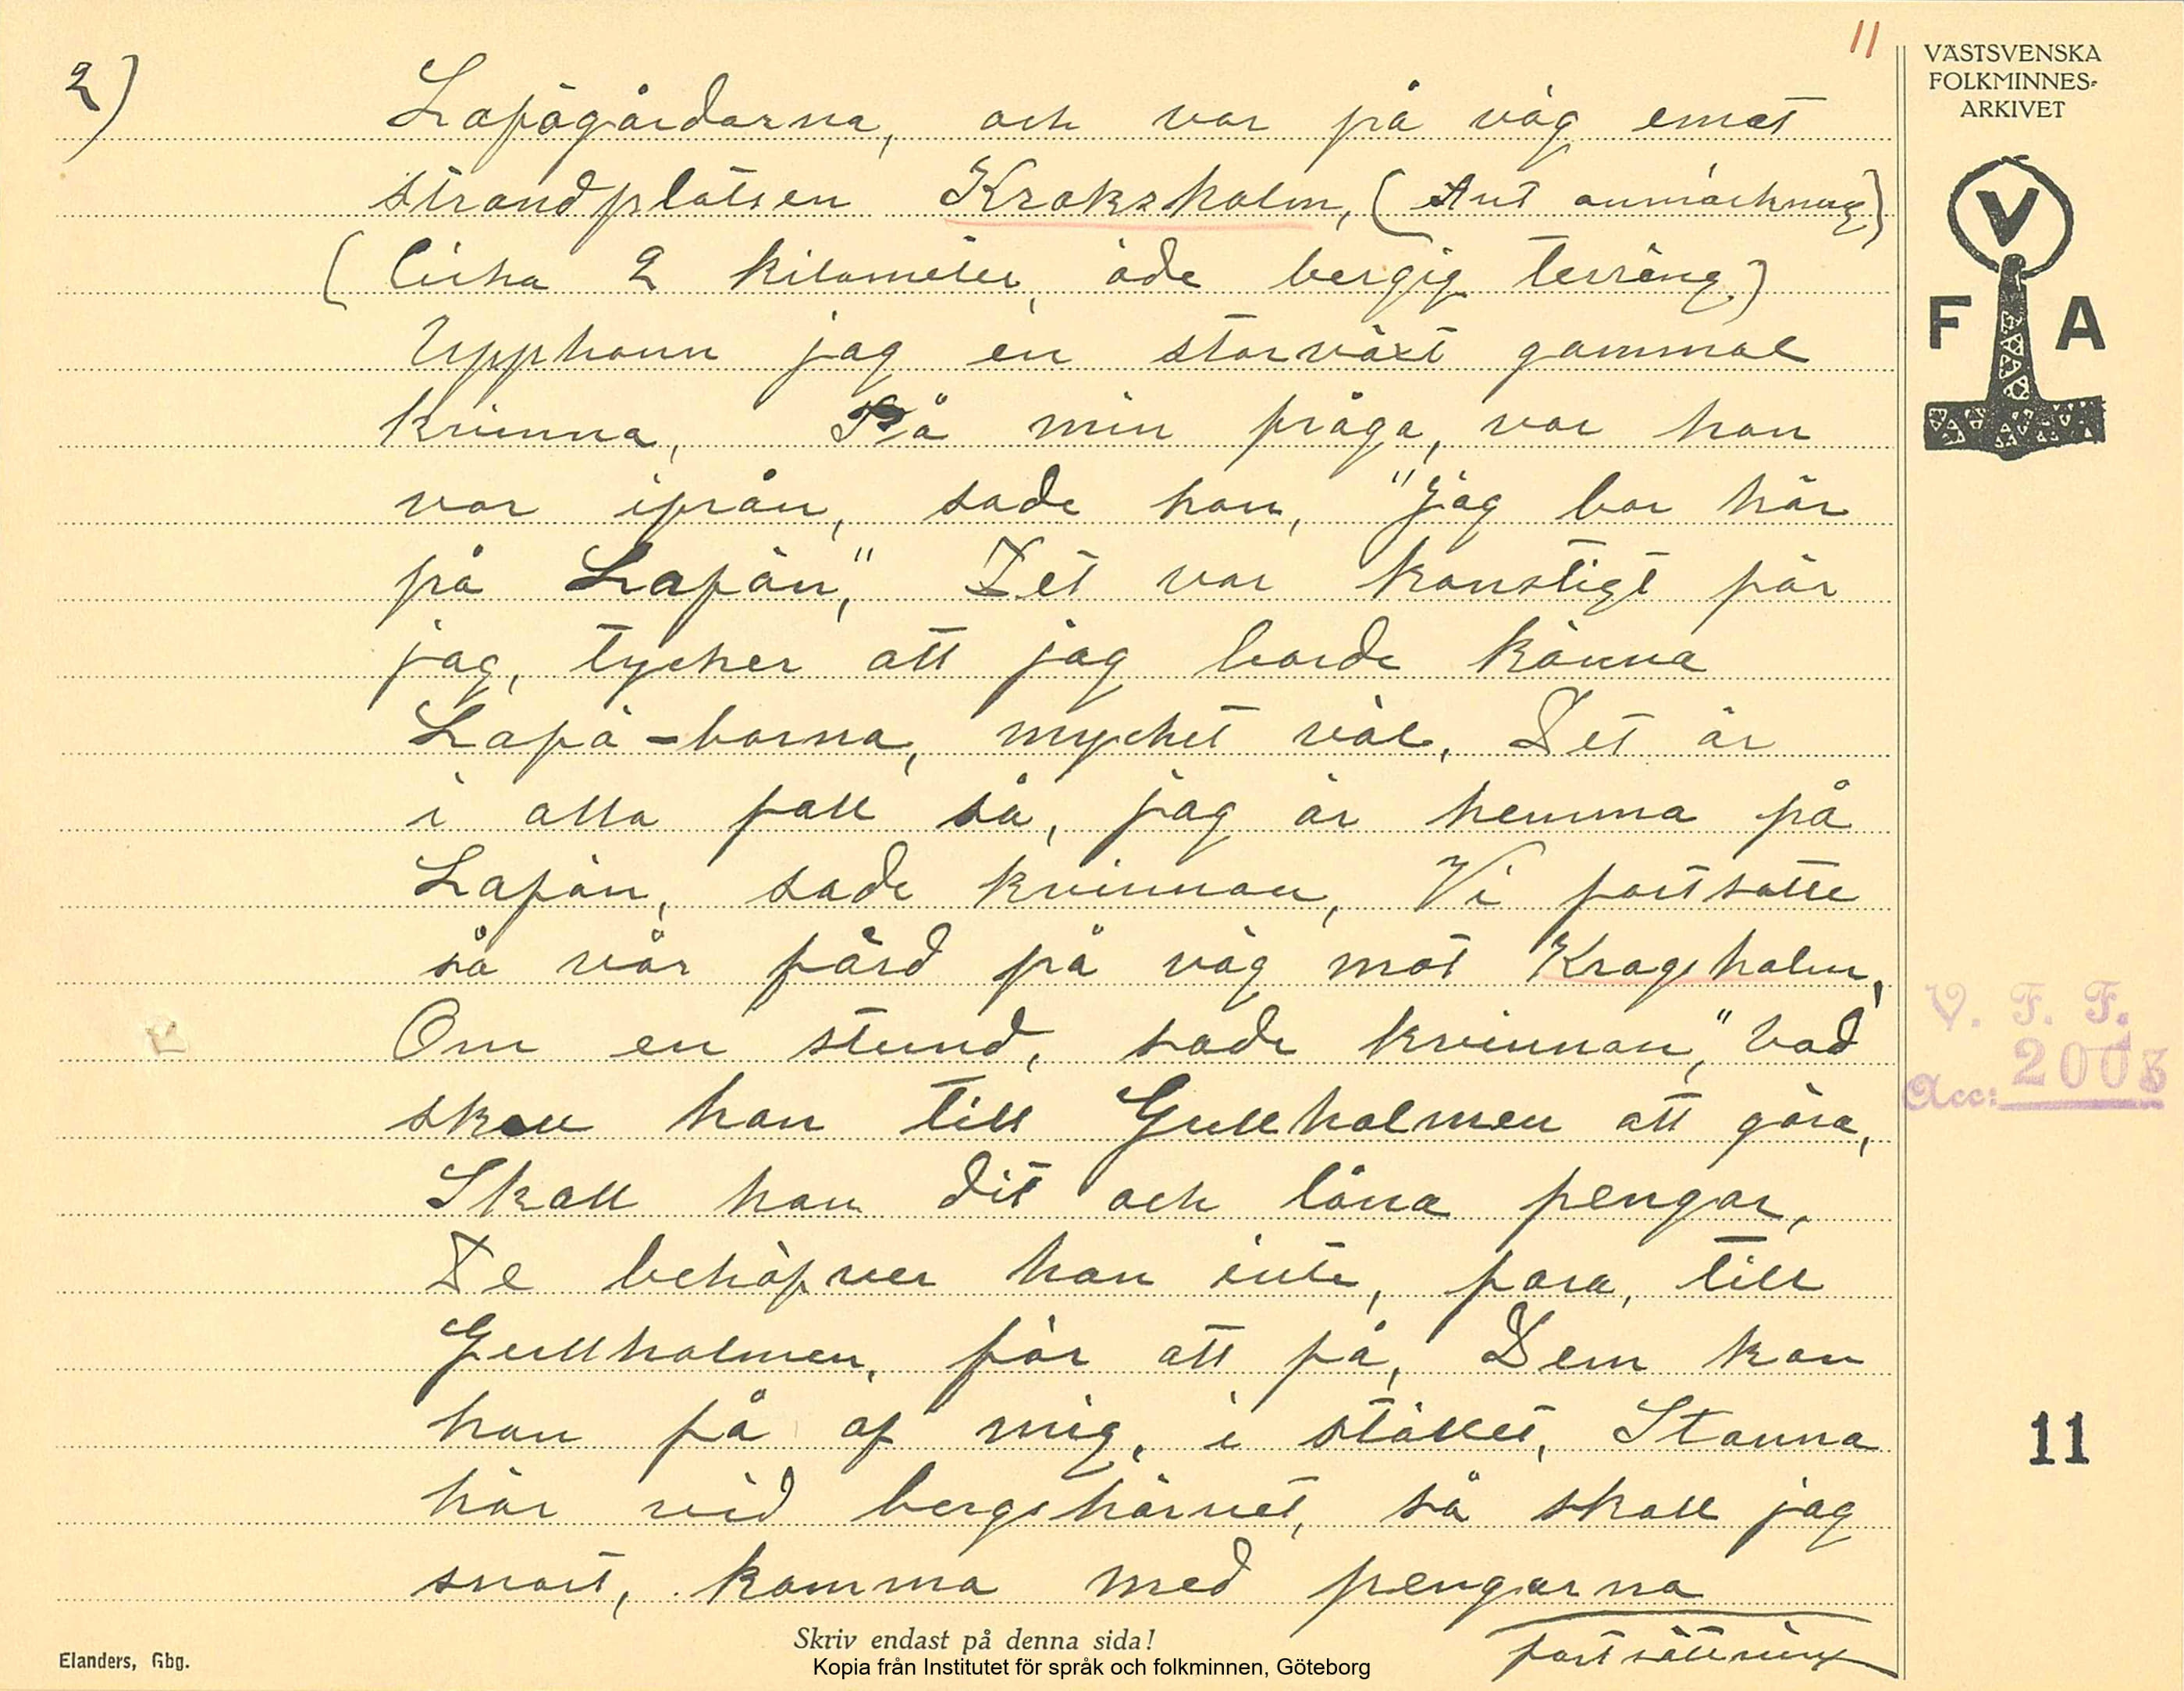 11
VÄSTSVENSKA
FOLKMINNES-
ARKIVET
V
F A
2)
Lafögårdarna, och var på väg emot
strandplatsen Krokzholm, (Ant anmärkning)
(Cirka 2 kilometer, öde bergig terräng)
Upphann jag en storväxt gammal
kvinna, På min fråga, var hon
var ifrån, sade hon, "jag bor här
på Lafön," Det var konstigt för
jag, tycker att jag borde känna
Lafö-borna, mycket väl, Det är
i alla fall så, jag är hemma på
Lafön, sade kvinnan, Vi fortsatte
så vår färd på väg mot Kragsholm,
Om en stund, sade kvinnan, "Vad
skall han till Gullholmen att göra,
Skall han dit och låna pengar,
De behöfver han inte, fara, till
Gullholmen, för att få, Dem kan
han få af mig, i stället, Stanna
här vid bergshörnet, så skall jag
snart, komma med pengarna
fortsättning
V. F. F.
Acc: 2003
11
Skriv endast på denna sida!
Elanders, Gbg.
Kopia från Institutet för språk och folkminnen, Göteborg